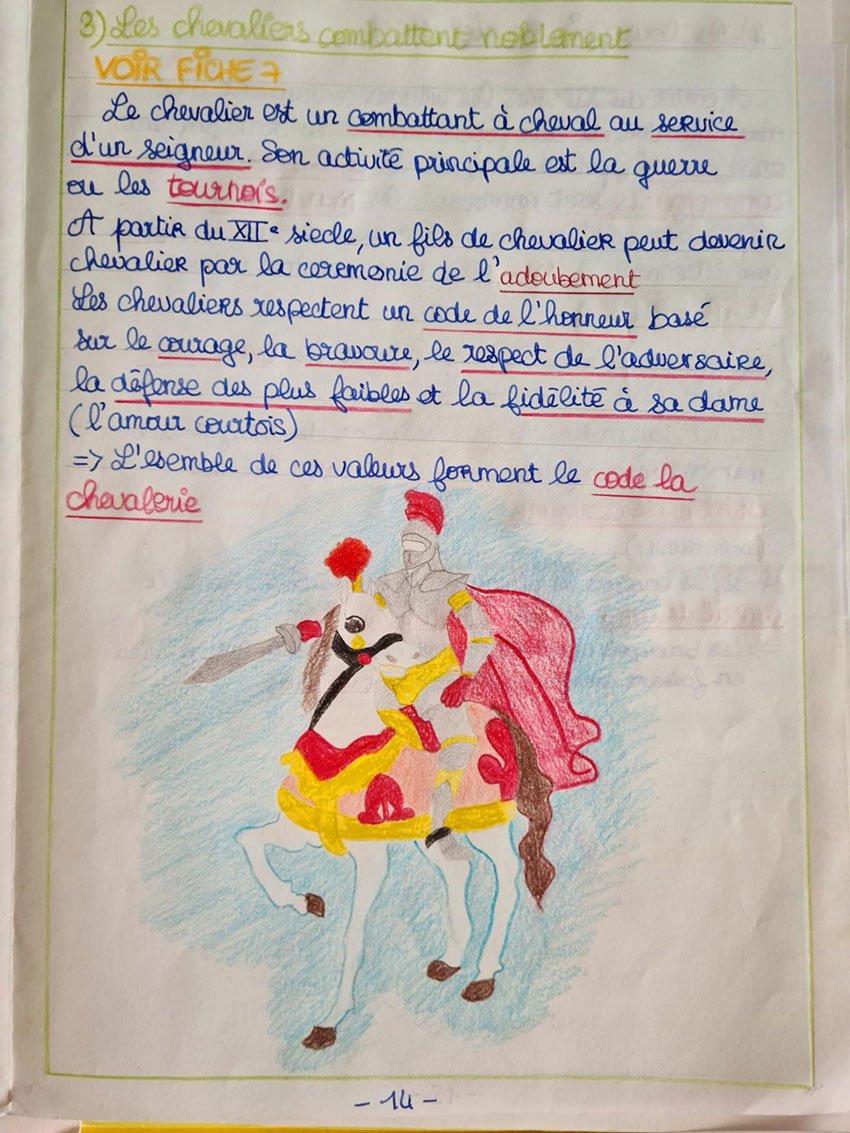 3) Les chevaliers combattent noblement
VOIR FICHE 7
Le chevalier est un combattant à cheval au service
d'un seigneur. Son activité principale est la guerre
ou les tournois.
A partir du XIIe siecle, un fils de chevalier peut devenir
chevalier par la ceremonie de l'adoubement
Les chevaliers respectent un code de l'honneur basé
sur le courage, la bravoure, le respect de l'adversaire,
la défense des plus faibles et la fidélité à sa dame
(l'amour courtois)
=> L'esemble de ces valeurs forment le code la
chevalerie
- 14 -